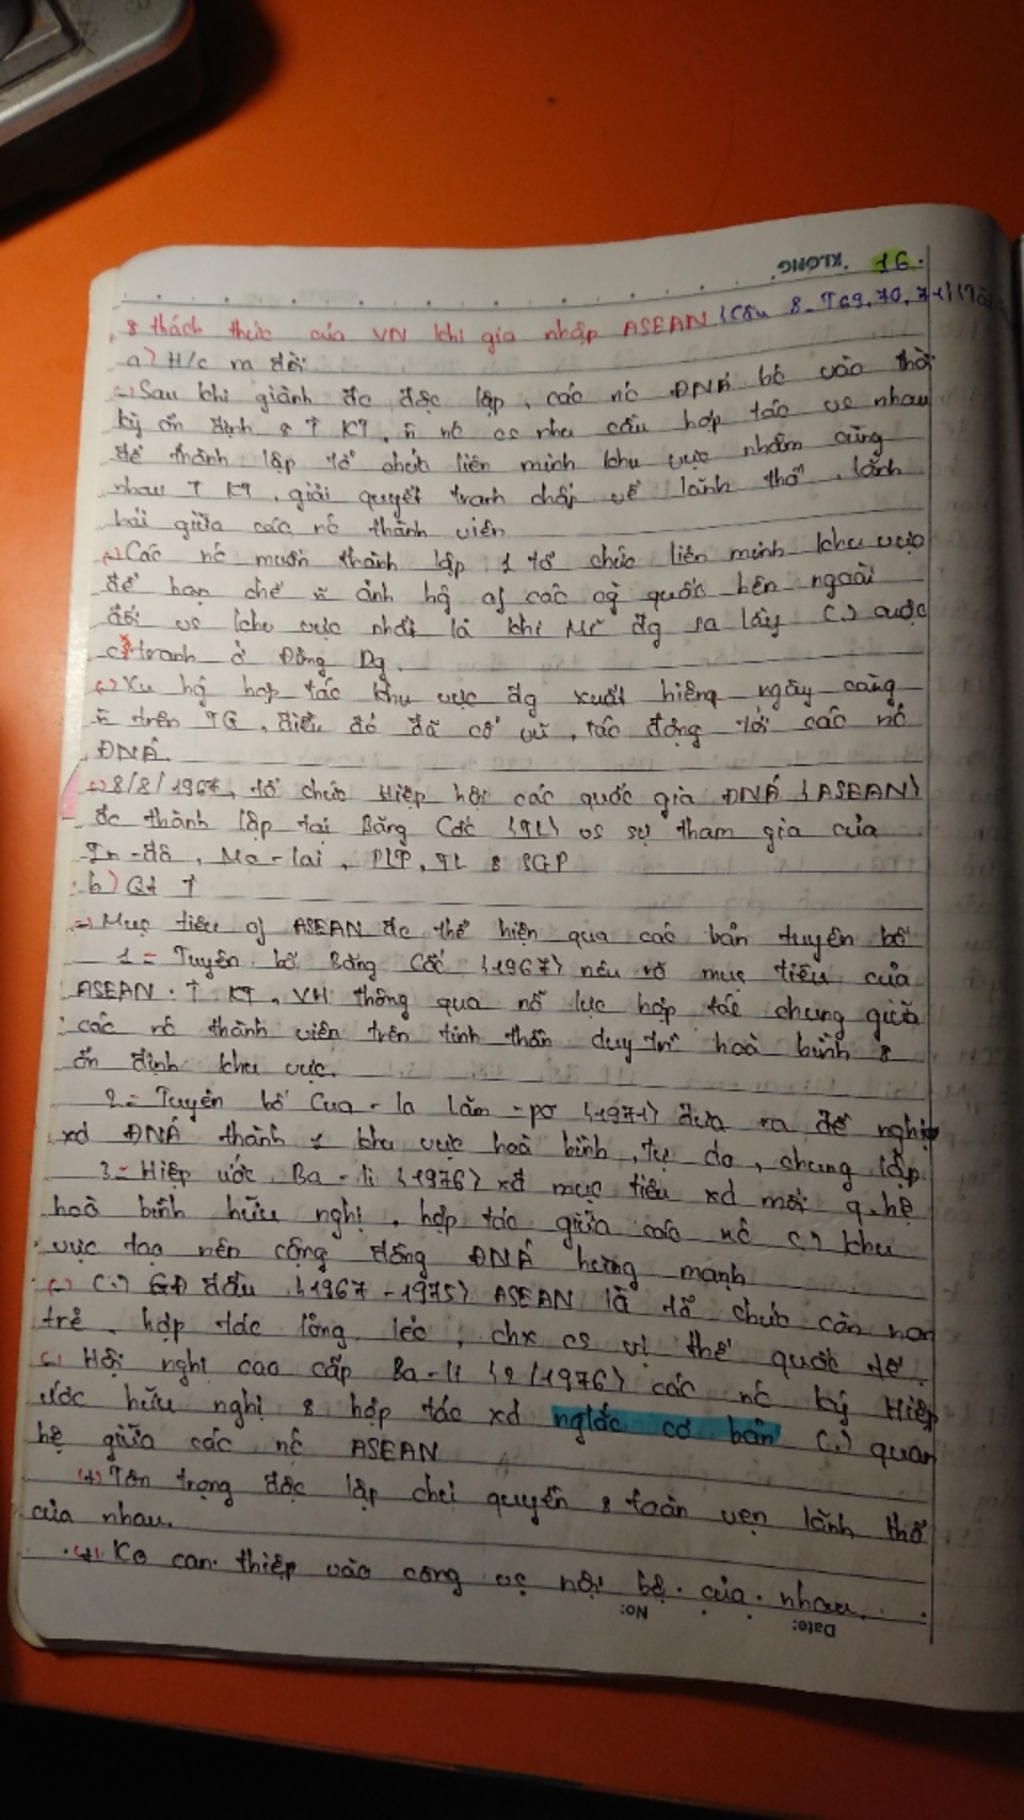 KLONG. 16.
& thách thức của VN khi gia nhập ASEAN (Câu 8_T69,70,71)
a) H/c ra đời
(-) Sau khi giành đc độc lập, các nc ĐNÁ bc vào thời
kỳ ổn định & ↑ KT, nc cs nhu cầu hợp tác vs nhau
để thành lập tổ chức liên minh khu vực nhằm cùng
nhau ↑ KT, giải quyết tranh chấp về lãnh thổ, lãnh
hải giữa các nc thành viên
(-) Các nc muốn thành lập 1 tổ chức liên minh khu vực
để hạn chế ảnh hg of các cg quốc bên ngoài
đối vs khu vực nhất là khi Mĩ đg sa lầy (.) cuộc
c* tranh ở Đông Dg.
(-) Xu hg hợp tác khu vực đg xuất hiêng ngày càng
trên TG, điều đó đã cổ vũ, tác động tới các nc
ĐNÁ.
(-) 8/8/1967, tổ chức Hiệp hội các quốc gia ĐNÁ (ASEAN)
đc thành lập tại Băng Cốc (TL) vs sự tham gia của
In-đô, Ma-lai, PLP, TL & SGP
b) Qt ↑
(-) Mục tiêu of ASEAN đc thể hiện qua các bản tuyên bố
1 = Tuyên bố Băng Cốc (1967) nêu rõ mục tiêu của
ASEAN. ↑ KT, VH thông qua nỗ lực hợp tác chung giữa
các nc thành viên trên tinh thần duy trì hoà bình &
ổn định khu vực.
2 = Tuyên bố Cua-la Lăm-pơ (1971) đưa ra đề nghị
xd ĐNÁ thành 1 khu vực hoà bình, tự do, chung lập
3 = Hiệp ước Ba-li (1976) xđ mục tiêu xd mối q.hệ
hoà bình hữu nghị, hợp tác giữa các nc (.) khu
vực tạo nên cộng đồng ĐNÁ hùng mạnh
(-) (.) GĐ đầu (1967-1975) ASEAN là tổ chức còn non
trẻ, hợp tác lỏng lẻo, chx cs vị thế quốc tế.
(-) Hội nghị cao cấp Ba-li (2/1976) các nc ký Hiệp
ước hữu nghị & hợp tác xđ ngtắc cơ bản (.) quan
hệ giữa các nc ASEAN
(+) Tôn trọng độc lập chủ quyền & toàn vẹn lãnh thổ
của nhau.
(+) Ko can thiệp vào công vc nội bộ của nhau.
No:
Date: